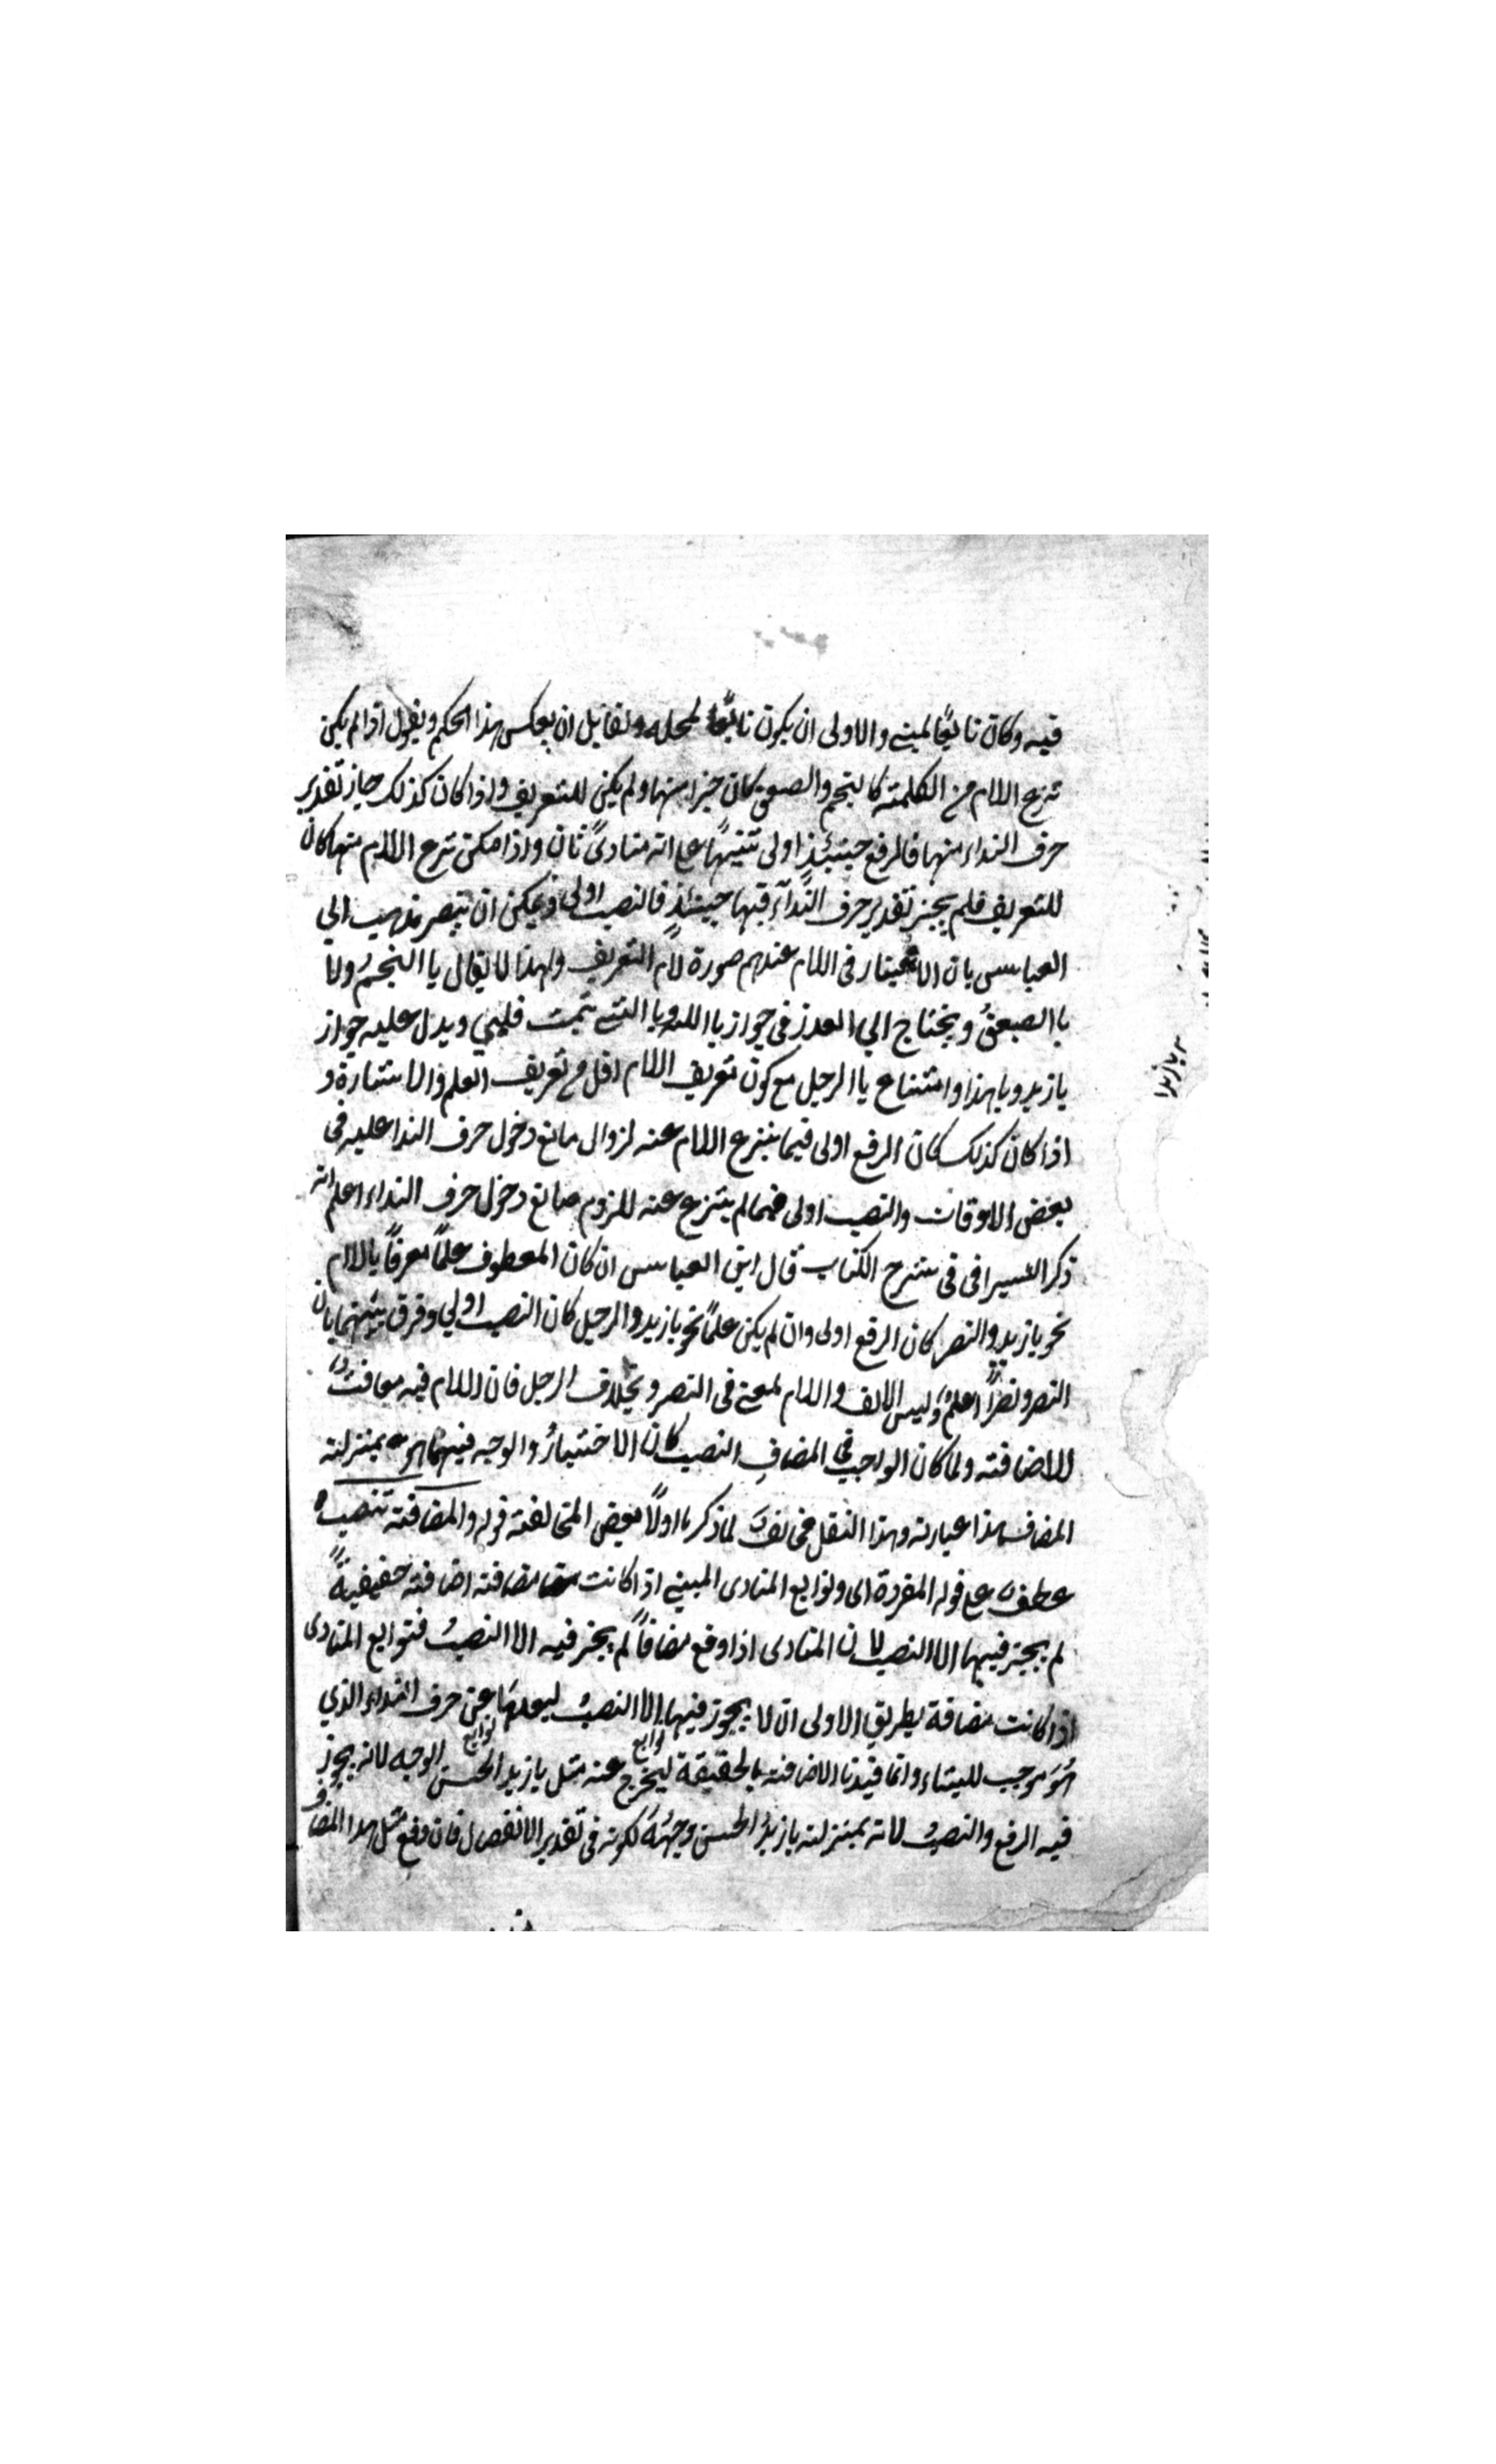 فيه وكان تابعًا لمبنى والاولى ان يكون تابعًا لمحله ولقايل ان يعكس هذا الحكم ويقول اذا لم يكن
نزع اللام من الكلمة كالنجم والصعق كان جزا منها ولم يكن للتعريف واذا كان كذلك جاز تقدير
حرف النداء منها فالرفع حينئذٍ اولى تنبيهًا على انه منادىً ثان واذا مكن نزع اللام منها كان
للتعريف فلم يجز تقدير حرف النّدآء فيها حينئذٍ فالنصب اولى ويمكن ان ينصر مذهب ابي
العباس بان الاعتبار فى اللام عندهم صورة لام التعريف ولهذا لا يقال يا النجمُ ولا
يا الصعقُ ويحتاج الي العذر في جواز يا الله ويا التي تيمت قلبي ويدل عليه جواز
يا زيد ويا هذا وامتناع يا الرجل مع كون تعريف اللام اقل من تعريف العلم والاشارة و
اذا كان كذلك كان الرفع اولى فيما ينزع اللام عنه لزوال مانع دخول حرف الندا عليه فى
بعض الاوقات والنصب اولى فيما لم ينزع عنه للزوم مانع دخول حرف النداء اعلم انه
ذكر السيرافى فى شرح الكتاب قال ابن العباس ان كان المعطوف علمًا معرفًا باللام
نحو يا زيد والنصر كان الرفع اولى وان لم يكن علمًا نحو يا زيد والرجل كان النصب اولي وفرق بينهما بان
النصر ونصرًا علمٌ وليس الالف واللام لمعنى فى النصر وبخلاف الرجل فان اللام فيه معاقبٌ
للاضافة ولما كان الواجب في المضافِ النصب كان الاختيارُ والوجه فيهما هو بمنزلة
المضاف هذا عبارته وهذا النقل مخالفٌ لما ذكرنا اولًا بعض المخالفة قوله والمضافة تنصب
عطفٌ على قوله المفردة اى وتوابع المنادى المبنى اذا كانت مضافة اضافة حقيقيةً
لم يجز فيها الا النصب لان المنادى اذا وقع مضافًا لم يجز فيه الا النصبُ فتوابع المنادى
اذا كانت مضافة بطريق الاولى ان لا يجوز فيها الا النصبُ لبعدها عن حرف النداء الذي
هو موجب للبناء وانما قيدنا الاضافة بالحقيقة ليخرج عنه توابع مثل يا زيد الحسن توابع الوجه لانه يجوز
فيه الرفع والنصبُ لانه بمنزلة يا زيدُ الحسن وجهُهُ لكونه فى تقدير الانفصال فان وقع مثل هذا المضاف
يا زيدا